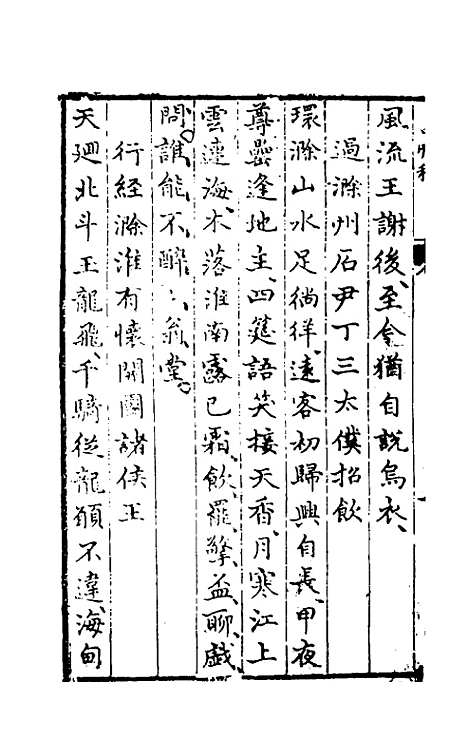 風流王謝後至今猶自說烏衣
過滁州石尹丁三太僕招飲
環滁山水足徜徉遠客初歸興自長甲夜
尊罍逢地主四筵語笑接天香月寒江上
雲連海木落淮南露已霜飲罷擎盃聊戲
問誰能不醉醉翁堂
行經滁淮有懷開國諸侯王
天廻北斗王龍飛千騎從龍願不違海甸